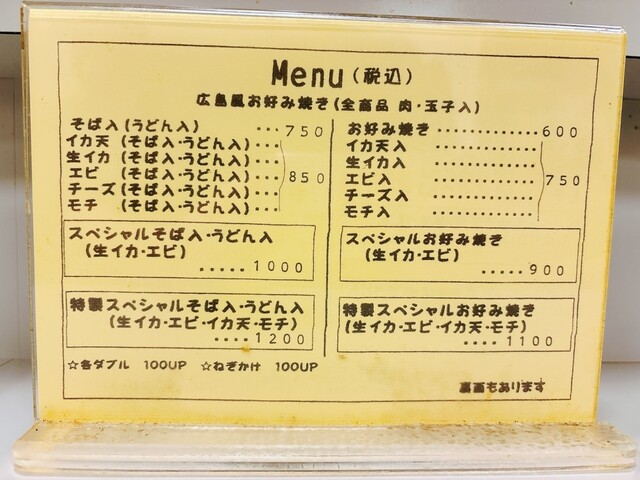 Menu(税込)
広島風お好み焼き(全商品 肉・玉子入)
そば入(うどん入) ・・・750
イカ天(そば入・うどん入)・・・
生イカ(そば入・うどん入)・・・
エビ(そば入・うどん入)・・・850
チーズ(そば入・うどん入)・・・
モチ(そば入・うどん入)・・・
スペシャルそば入・うどん入
(生イカ・エビ)
・・・・・1000
特製スペシャルそば入・うどん入
(生イカ・エビ・イカ天・モチ)
・・・・1200
☆各ダブル 100UP ☆ねぎかけ 100UP
お好み焼き・・・・・・・・・・・・600
イカ天入 ・・・・・・・・・・・・
生イカ入 ・・・・・・・・・・・・
エビ入 ・・・・・・・・・・・・750
チーズ入 ・・・・・・・・・・・・
モチ入 ・・・・・・・・・・・・
スペシャルお好み焼き
(生イカ・エビ)
・・・・・900
特製スペシャルお好み焼き
(生イカ・エビ・イカ天・モチ)
・・・・1100
裏面もあります